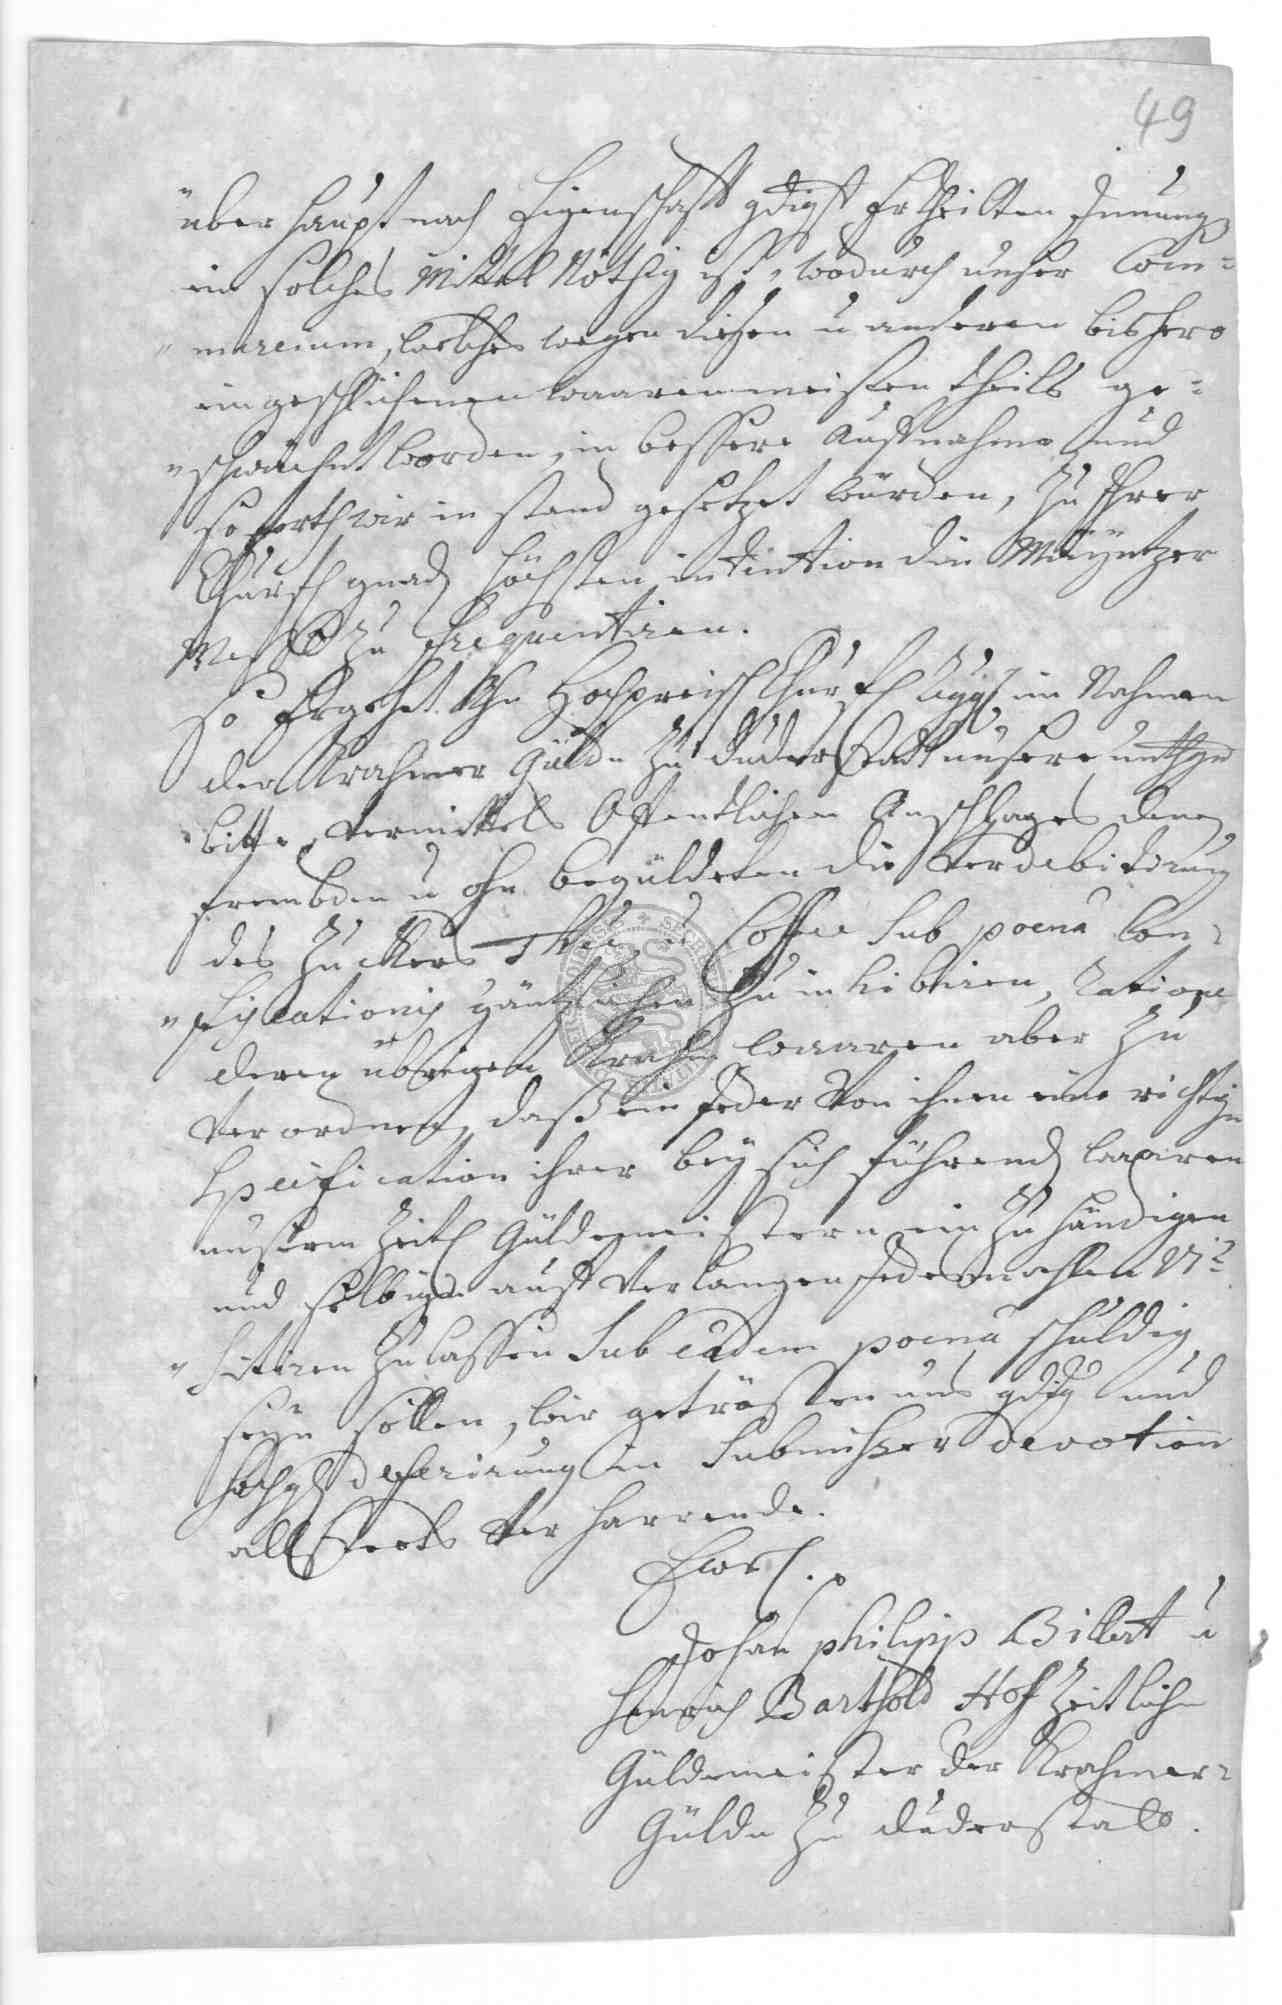 49
„über haupt nach Eigenschafft gdigst Ertheilten Innung
ein solches Mittel Nöthig ist, wodurch unser Com=
„mercium, welches wegen diesen u anderen bishero
eingeschlichenen waaren meisten theils ge=
„schwächet worden, in bessere Auffnahme und
soforth wir in stand gesetzet würden, zu Ihrer
Churfl gnad höchsten intention die Mayntzer
Messe zu frequentiren.
So Ergehet Ahn Hochpreißl Churfl im Nahmen
der Krahmer Gülde zu duderstadt unsere unthgst
bitte, vermittels Offentlichen Anschlages denen
frembden u ohn begüldeten die verdebitirung
des Zuckers Thee u Coffee sub poena con=
„fiscationis gäntzlichen zu inhibiren, ratione
deren übrigen Krahm waaren aber zu
verordnen, daß ein Jeder von ihnen eine richtige
specification ihrer bey sich führend waaren
unsern Zeitl Güldemeistern ein zu händigen
und selbige auff verlangen Jedesmahlen vi=
„sitiren zu lassen sub eadem poena schuldig
seyn sollen, wir getrösten uns gdig und
hochg deferirung in submisser devotion
allstets verharrende.
Ewrl.
Johan philipp Billert u
Henrich Barthold Hoff Zeitliche
Güldemeister der Krahmer=
Gülde zu duderstadt.